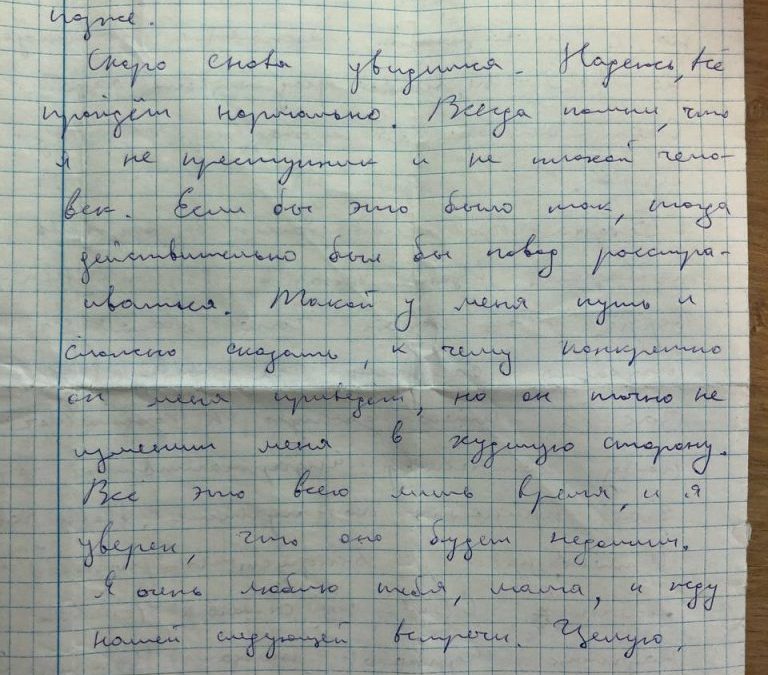 позже.
Скоро снова увидимся. Надеюсь, всё
пройдёт нормально. Всегда помни, что
я не преступник и не плохой чело-
век. Если бы это было так, тогда
действительно был бы повод расстра-
иваться. Такой у меня путь и
сложно сказать, к чему конкретно
он меня приведёт, но он точно не
изменит меня в худшую сторону.
Всё это всего лишь время, и я
уверен, что оно будет недолгим.
Я очень люблю тебя, мама, и жду
нашей следующей встречи. Целую,